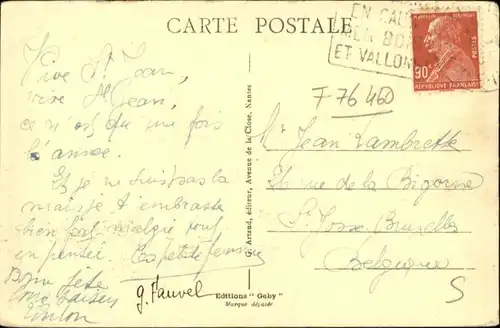 CARTE POSTALE
EN CAL
MER BO
ET VALLON
MARCELIN BERTHELOT
POSTES
90
RÉPUBLIQUE FRANÇAISE
F 76 460
Vive St Jean,
vive St Jean,
ce n'est qu'une fois
l'année.
Et je ne suis pas là
mais je t'embrasse
bien fort malgré tout
en pensée. Ta petite femme
Bonne fête
bons baisers
G. Artaud, éditeur, Avenue de la Close, Nantes
Mr Jean Lambrette
rue de la Bigorne
St Josse Bruxelles
Belgique
S
g. Fauvel
Editions "Gaby"
Marque déposée